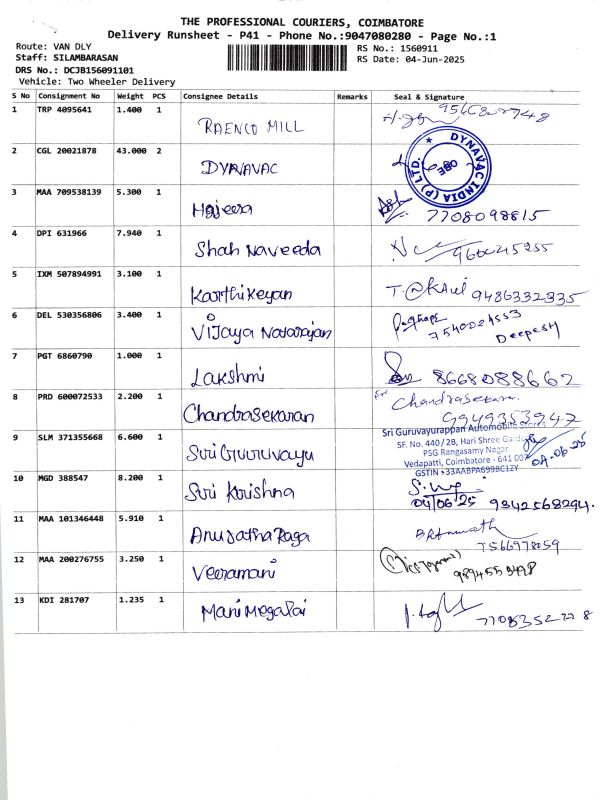 THE PROFESSIONAL COURIERS, COIMBATORE
Delivery Runsheet - P41 - Phone No.:9047080280 - Page No.:1
Route: VAN DLY
RS No.: 1560911
Staff: SILAMBARASAN
RS Date: 04-Jun-2025
DRS No.: DCJB156091101
Vehicle: Two Wheeler Delivery
S No Consignment No Weight PCS Consignee Details Remarks Seal & Signature
1 TRP 4095641 1.400 1 RAENCO MILL
2 CGL 20021878 43.000 2 DYNAVAC
DYNAVAC INDIA (P) LTD.
CBE
3 MAA 709538139 5.300 1 Hajeera
7708098815
4 DPI 631966 7.940 1 Shah Naveeda
5 IXM 507894991 3.100 1 Karthikeyan
9486332335
6 DEL 530356806 3.400 1 Vijaya Natarajan
Deepesh
7 PGT 6860790 1.000 1 Lakshmi
8668088662
8 PRD 600072533 2.200 1 Chandrasekaran
Chandrasekaran
9949353947
9 SLM 371355668 6.600 1 Sri Guruvayu
Sri Guruvayurappan Automobile Stores
SF. No. 440/2B, Hari Shree
PSG Rangasamy Nagar
Vedapatti, Coimbatore - 641 007
GSTIN :33AABPA6998C1ZY
04-06-25
10 MGD 388547 8.200 1 Sri Krishna
04/06/25 9342568294.
11 MAA 101346448 5.910 1 Anuratha Raga
7566978059
12 MAA 200276755 3.250 1 Veeramani
13 KDI 281707 1.235 1 Mani Megalai